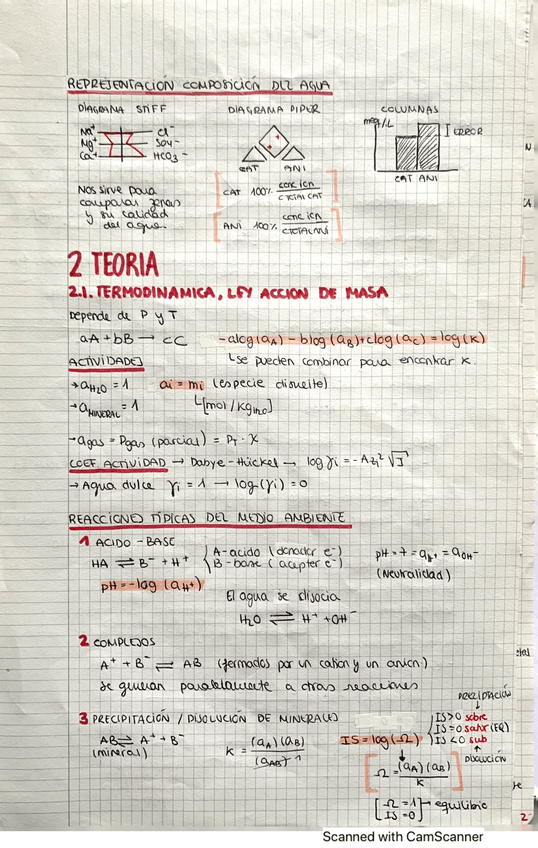 REPRESENTACIÓN COMPOSICIÓN DEL AGUA
DIAGRAMA STIFF
DIAGRAMA PIPER
COLUMNAS
Na+ Cl-
Mg+ SO4-
Ca+ HCO3-
CAT ANI
meq/L
ERROR
CAT ANI
Nos sirve para
comparar zonas
y su calidad
del agua.
CAT 100% conc ion / CTOTAL CAT
ANI 100% conc ion / CTOTAL ANI
2 TEORIA
2.1. TERMODINAMICA, LEY ACCION DE MASA
Depende de P y T
aA + bB → cC -alog(aA) - blog(aB) + clog(aC) = log(K)
↳ se pueden combinar para encontrar K.
ACTIVIDADES
→ aH2O = 1 ai = mi (especie disuelta)
→ aMINERAL = 1 ↳ [mol/kgH2O]
→ agas = Pgas (parcial) = PT · X
COEF. ACTIVIDAD → Debye-Hückel → log γi = -Azi² √I
→ Agua dulce γi = 1 → log(γi) = 0
REACCIONES TÍPICAS DEL MEDIO AMBIENTE
1 ACIDO - BASE
HA ⇌ B- + H+
A - acido (donador e-)
B - base (acepter e-)
pH = 7 = aH+ = aOH-
(Neutralidad)
pH = -log (aH+)
El agua se disocia
H2O ⇌ H+ + OH-
2 COMPLEJOS
A+ + B- ⇌ AB (formados por un cation y un anion.)
Se generan paralelamente a otras reacciones
3 PRECIPITACIÓN / DISOLUCIÓN DE MINERALES
AB ⇌ A+ + B-
(mineral)
K = (aA)(aB) / (aAB)→1
IS = log(Ω)
PRECIPITACIÓN
IS>0 sobre
IS=0 satur (EQ)
IS<0 sub
DISOLUCIÓN
Ω = (aA)(aB) / K
[Ω = 1
IS = 0] → equilibrio
2
Scanned with CamScanner